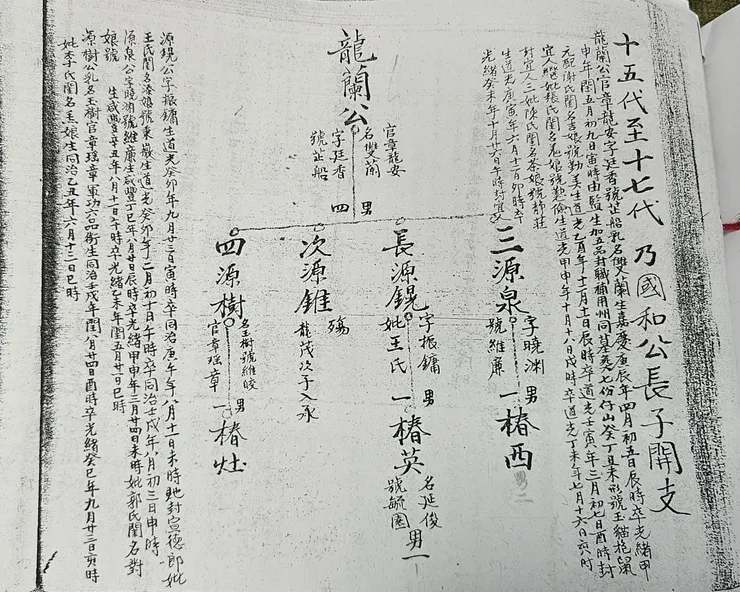 十五代至十七代 乃國和公長子開支
龍蘭公官章龍安字廷香號芷船乳名雙蘭生嘉慶庚辰年四月初五日辰時卒光緒甲
申年閏五月初九日寅時由監生加五品封職補用州同墓葬七份仔山癸丁丑未形號玉貓抱鼠
元配謝氏閨名吉娘號勤美生道光乙酉年十二月十一日辰時卒道光壬寅年三月初七日酉時封
宜人繼妣張氏閨名尾娘號勤儉生道光甲申年十月十八日戌時卒道光丁未年七月十六日亥時
封宜人三妣陳氏閨名茶娘號靜莊
生道光庚寅年六月十二日卯時卒
光緒癸未年十月廿六日午時封宜人
龍蘭公
官章龍安
名雙蘭
字廷香
號芷船
四男
三源泉
字曉淵
號維廉
男
一椿西
男二
長源錕
字振鏞
妣王氏
男
一椿英
名延俊
號毓園
男一
次源錐
殤
龍茂次子入承
四源樹
名玉樹號維皎
官章瑶章
男
一椿灶
源錕公字振鏞生道光癸卯年九月廿三日寅時卒同治庚午年八月十一日未時貤封宣德郎妣
王氏閨名湊娘號東嚴生道光癸卯年二月初十日午時卒同治壬戌年八月初三日申時
源泉公字曉淵號維廉生咸豐丁巳年八月廿日辰時卒光緒甲申年三月廿四日未時妣郭氏閨名對
娘號 生咸豐辛五年八月十一日午時卒光緒乙未年閏五月廿一日巳時
源樹公乳名玉樹官章瑶章軍功六品銜生同治壬戌年閏八月廿四日酉時卒光緒癸巳年九月廿二日亥時
妣李氏閨名孟娘生同治乙丑年六月十二日巳時